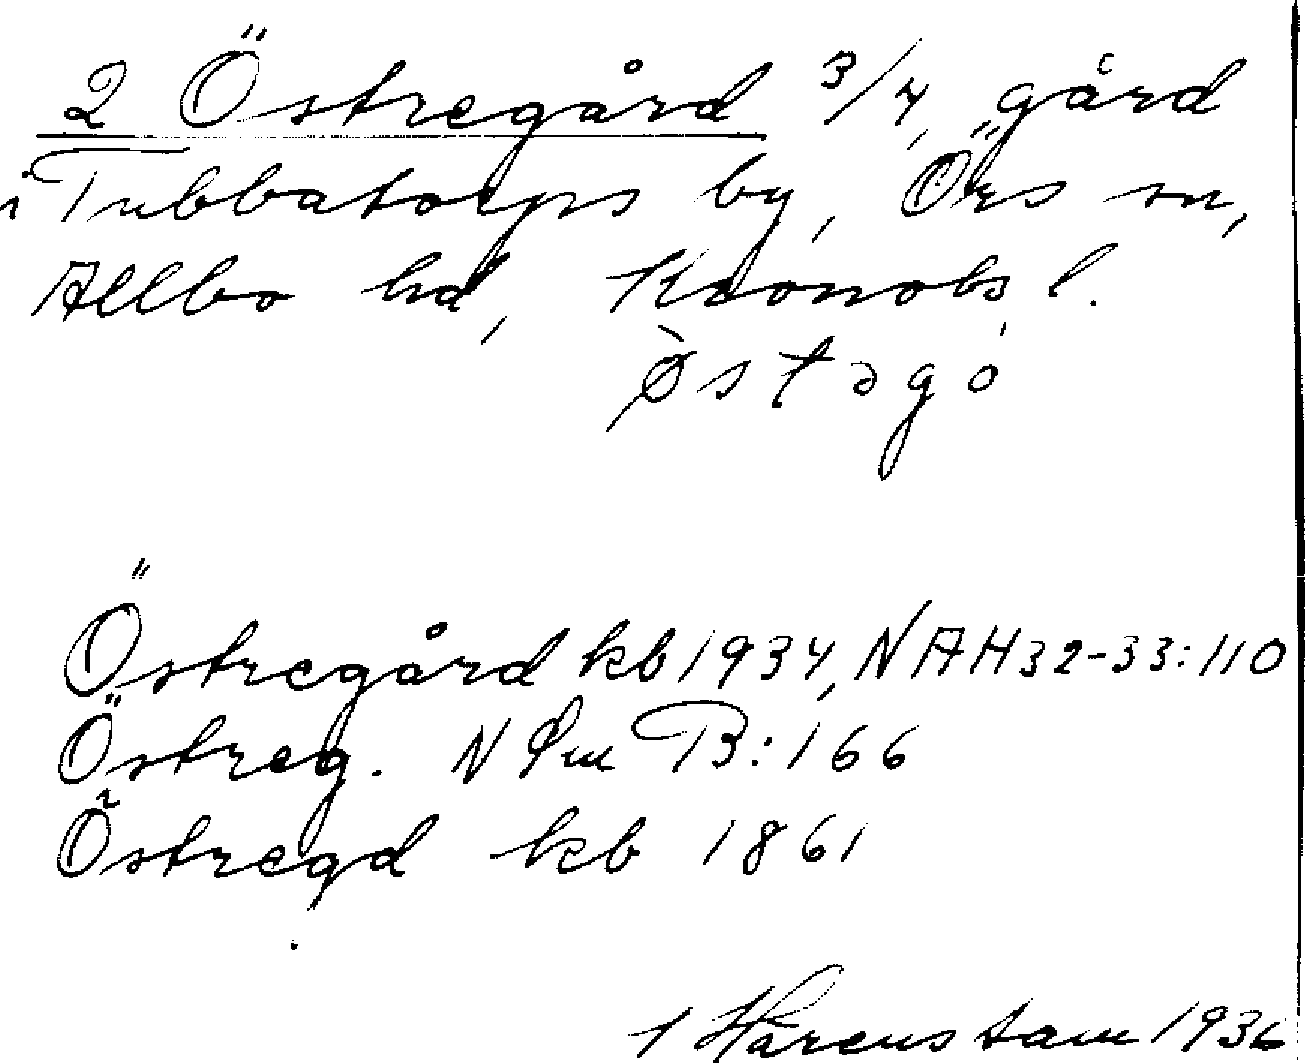 2 Östregård 3/4 gård
i Tubbatorps by, Örs sn,
Allbo hd, Kronobs l.
östəgȯ
Östregård kb 1934, NAH 32-33:110
Östreg. N Öm B:166
Östregd kb 1861
Hårenstam 1936